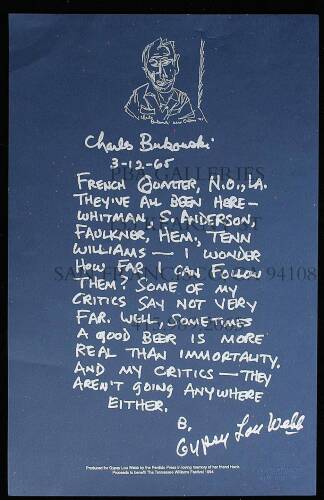 Charles Bukowski
3-12-65
FRENCH QUARTER, N.O., LA.
THEY'VE ALL BEEN HERE—
WHITMAN, S. ANDERSON,
FAULKNER, HEM., TENN
WILLIAMS — I WONDER
HOW FAR I CAN FOLLOW
THEM? SOME OF MY
CRITICS SAY NOT VERY
FAR. WELL, SOMETIMES
A GOOD BEER IS MORE
REAL THAN IMMORTALITY.
AND MY CRITICS — THEY
AREN'T GOING ANYWHERE
EITHER.
B.
Gypsy Lou Webb
Produced for Gypsy Lou Webb by the Perdido Press in loving memory of her friend Hank.
Proceeds to benefit The Tennessee Williams Festival 1994.
PBA GALLERIES